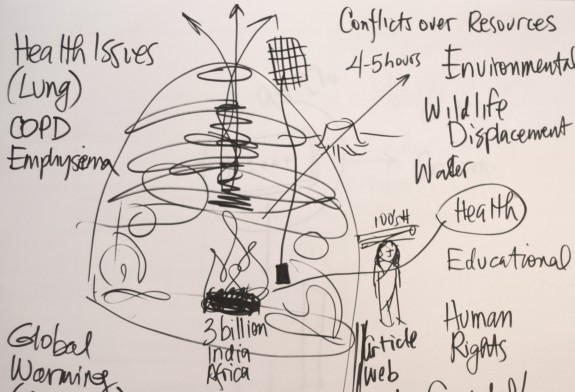 Health Issues
(Lung)
COPD
Emphysema
Conflicts over Resources
4-5 hours
Environmental
Wildlife
Displacement
Water
100's #
Health
Educational
Human
Rights
3 billion
India
Africa
Article
Web
Global
Warming